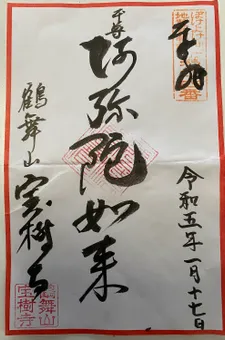 奉拝
令和五年一月十七日
阿弥陀如来
鶴舞山
宝樹寺
鶴舞山
宝樹寺